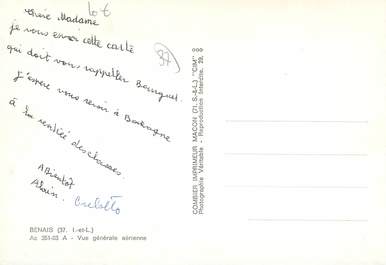 Chère Madame
je vous envoi cette carte
qui doit vous rappeller Bourgueil.
J'espère vous revoir à Boulogne
à la rentrée des classes.
A Bientôt
Alain.
37
COMBIER IMPRIMEUR MACON (71. S.-&-L.) "CIM"
Photographie Véritable - Reproduction Interdite. 29.
BENAIS (37. I.-et-L.)
Ac 251-53 A - Vue générale aérienne